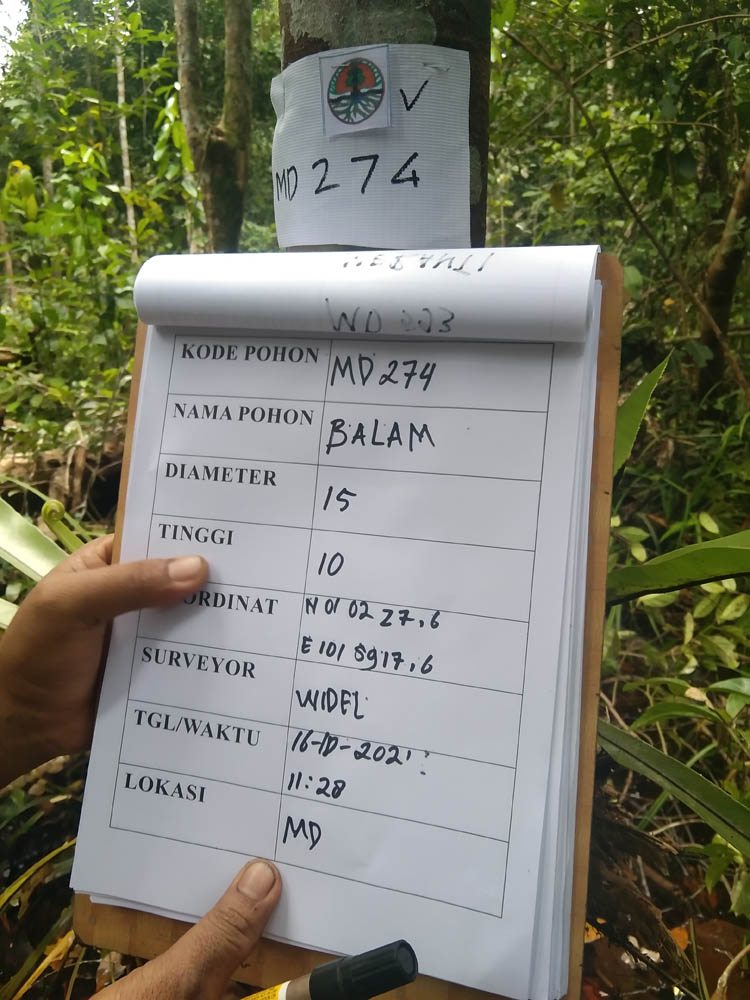 V
MD 274
MERANTI
WD 223
KODE POHON MD 274
NAMA POHON BALAM
DIAMETER 15
TINGGI 10
ORDINAT N 01 02 27,6
E 101 5917,6
SURVEYOR WIDEL
TGL/WAKTU 16-10-2021
11:28
LOKASI MD